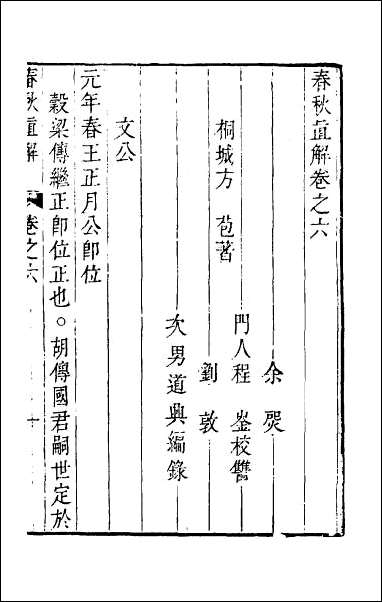 春秋直解卷之六
余熋
桐城方　苞著　門人程　崟校讐
劉敦
次男道興編錄
文公
元年春王正月公卽位
穀梁傳繼正卽位正也○胡傳國君嗣世定於
春秋直解　卷之六